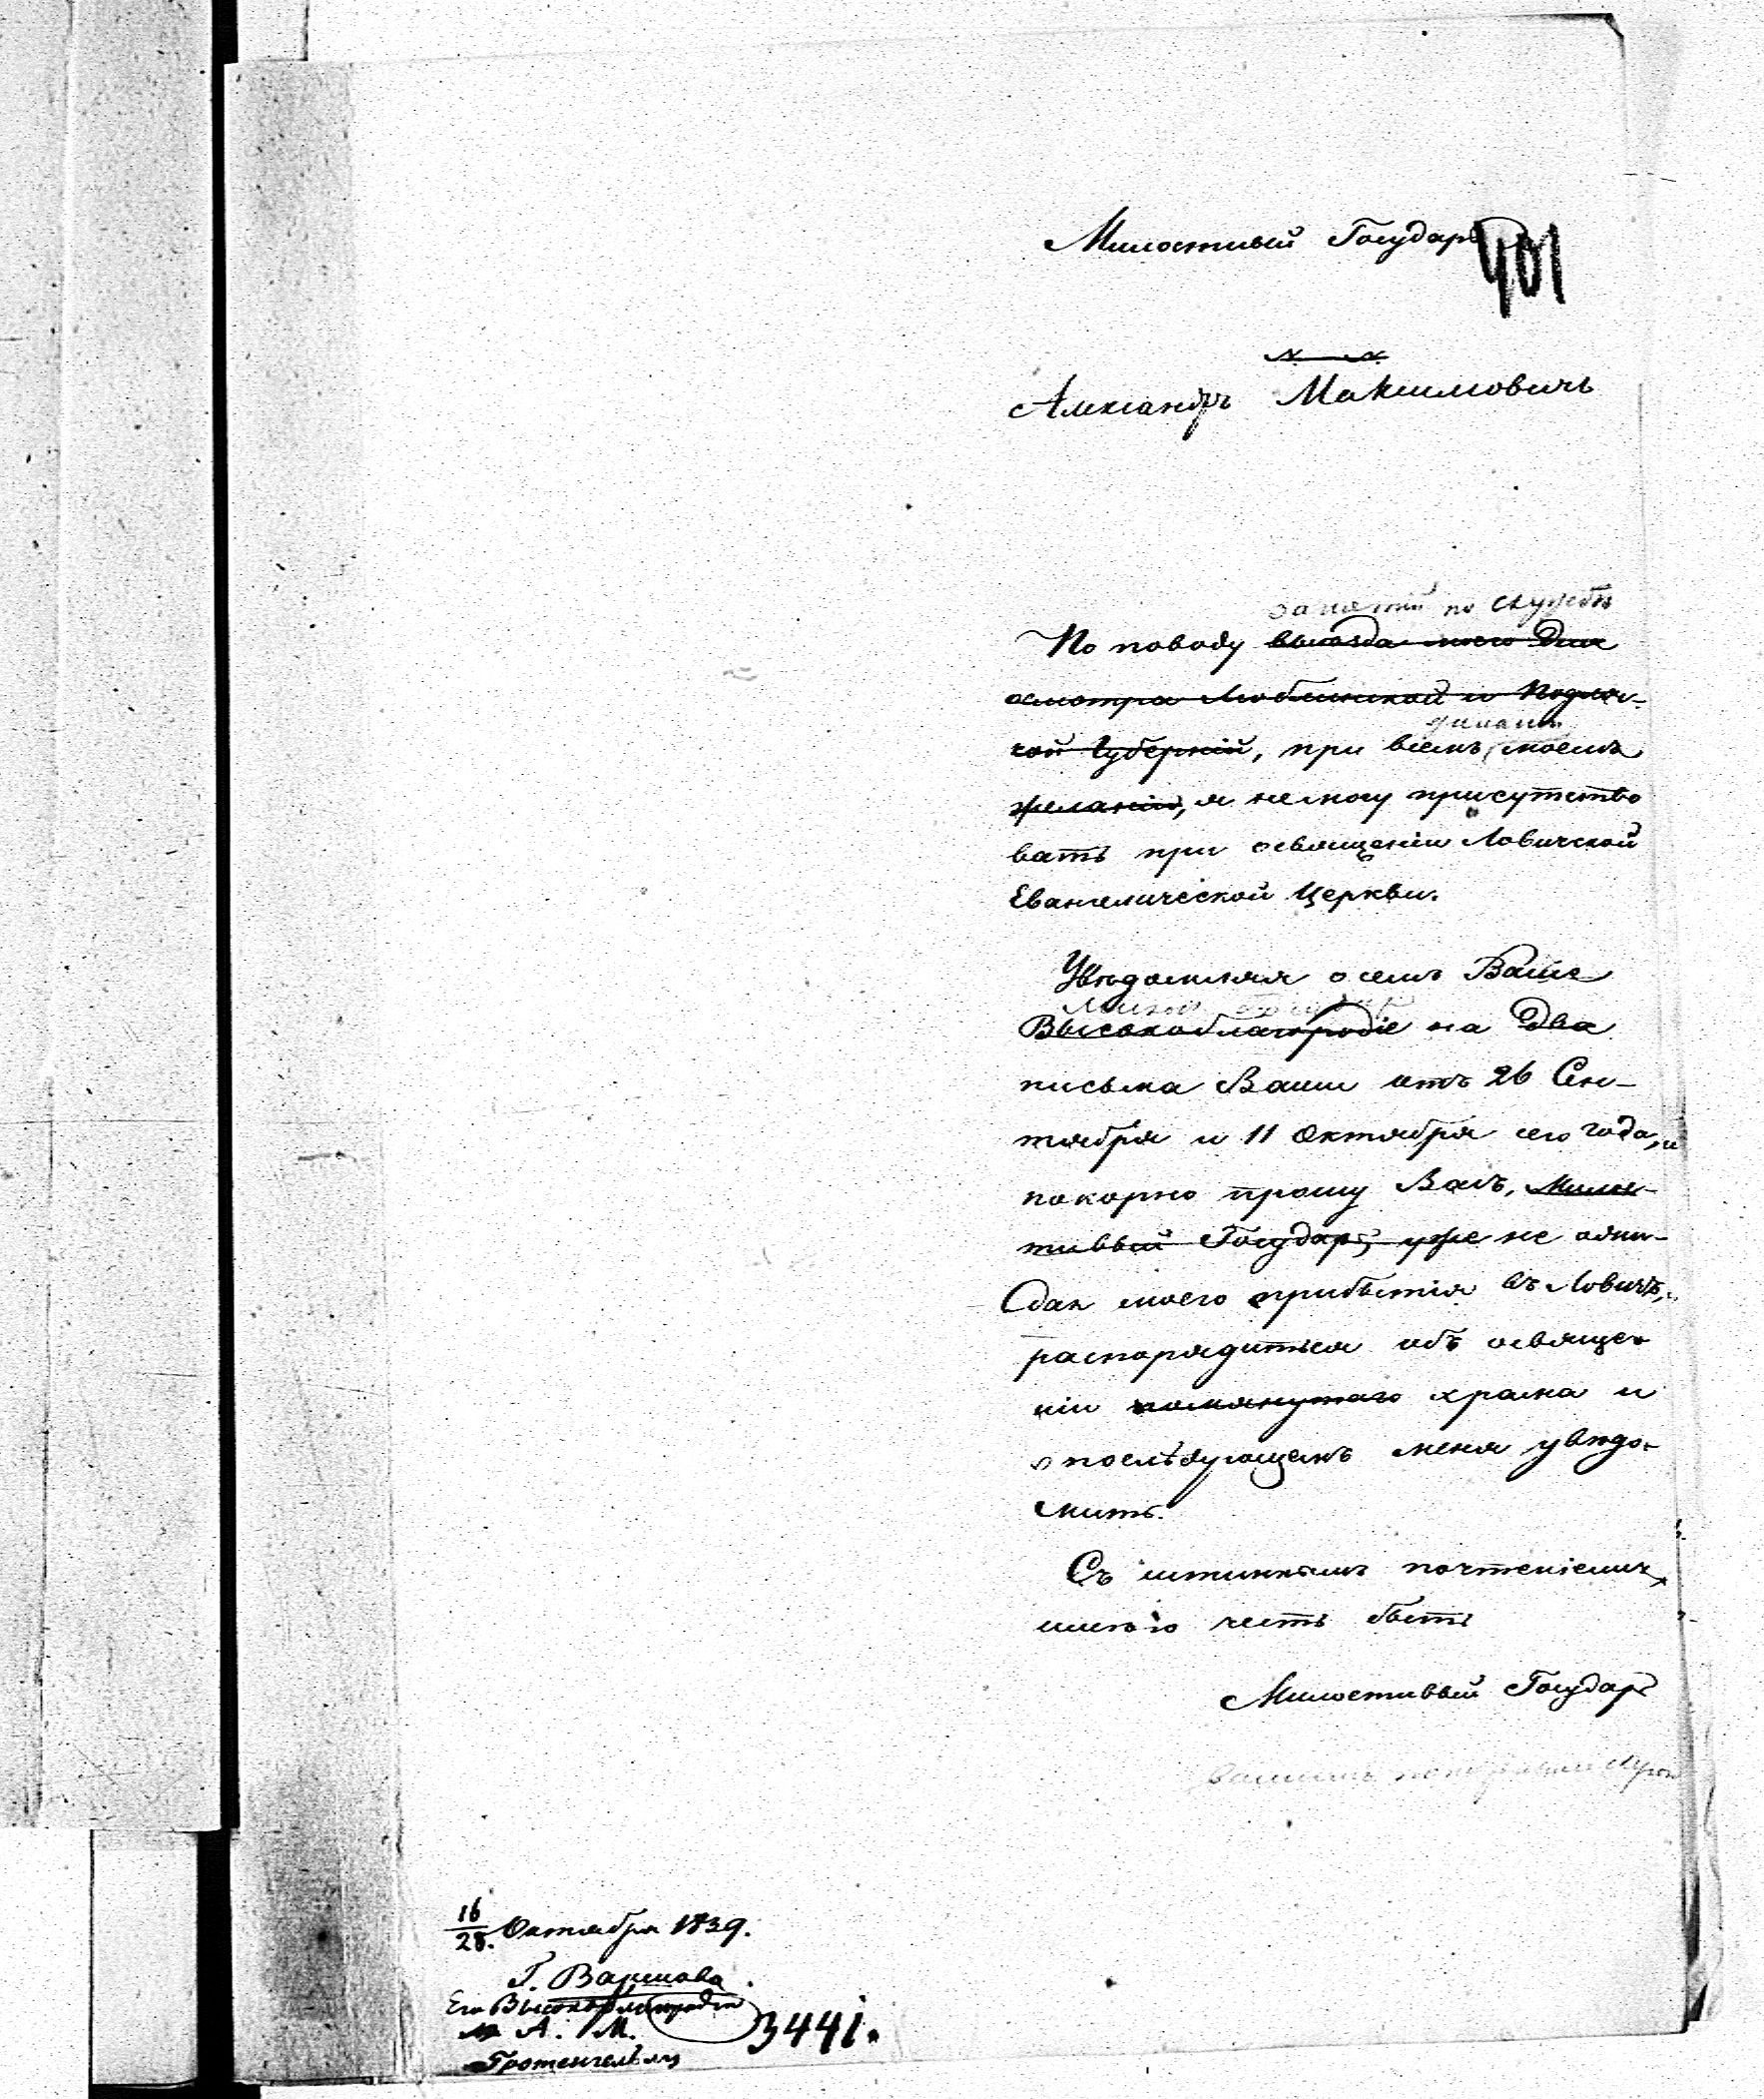 Милостивый Государь
401
Александръ Максимовичъ
занятій по службѣ
По поводу выезда моего для
осмотра Люблинской и Подляс-
кой Губерній, при всемъ моемъ
желаніи, я не могу присутство
вать при освященіи Ловичской
Евангелической Церкви.
Увѣдомляя о семъ Ваше
Высокоблагородіе на два
письма Ваши отъ 26 Сен-
тября и 11 Октября сего года, и
покорно прошу Васъ, Милос-
тивый Государь, уже не ожи-
дая моего прибытія въ Ловичъ,
распорядиться объ освяще-
ніи помянутаго храма и
о послѣдующемъ меня увѣдо-
мить.
Съ истиннымъ почтеніемъ
имѣю честь быть
Милостивый Государь
вашимъ покорнымъ слугою
16/28. Октября 1839.
Г. Варшава.
Его Высокоблагородію
А. М.
3441.